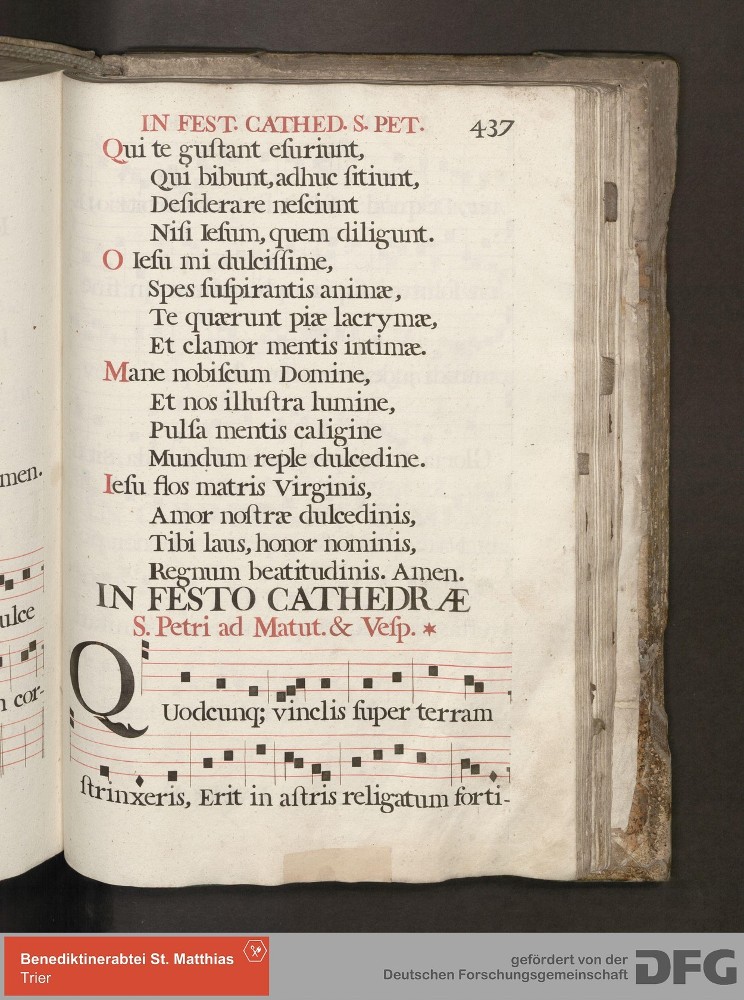 IN FEST. CATHED. S. PET. 437
Qui te guſtant eſuriunt,
Qui bibunt, adhuc ſitiunt,
Deſiderare neſciunt
Niſi Ieſum, quem diligunt.
O Ieſu mi dulciſſime,
Spes ſuſpirantis animæ,
Te quærunt piæ lacrymæ,
Et clamor mentis intimæ.
Mane nobiſcum Domine,
Et nos illuſtra lumine,
Pulſa mentis caligine
Mundum reple dulcedine.
Ieſu flos matris Virginis,
Amor noſtræ dulcedinis,
Tibi laus, honor nominis,
Regnum beatitudinis. Amen.
IN FESTO CATHEDRÆ
S. Petri ad Matut. & Veſp. *
QUodcunq; vinclis ſuper terram
ſtrinxeris, Erit in aſtris religatum forti-
men.
ulce
cor-
Benediktinerabtei St. Matthias
Trier
gefördert von der
Deutschen Forschungsgemeinschaft
DFG